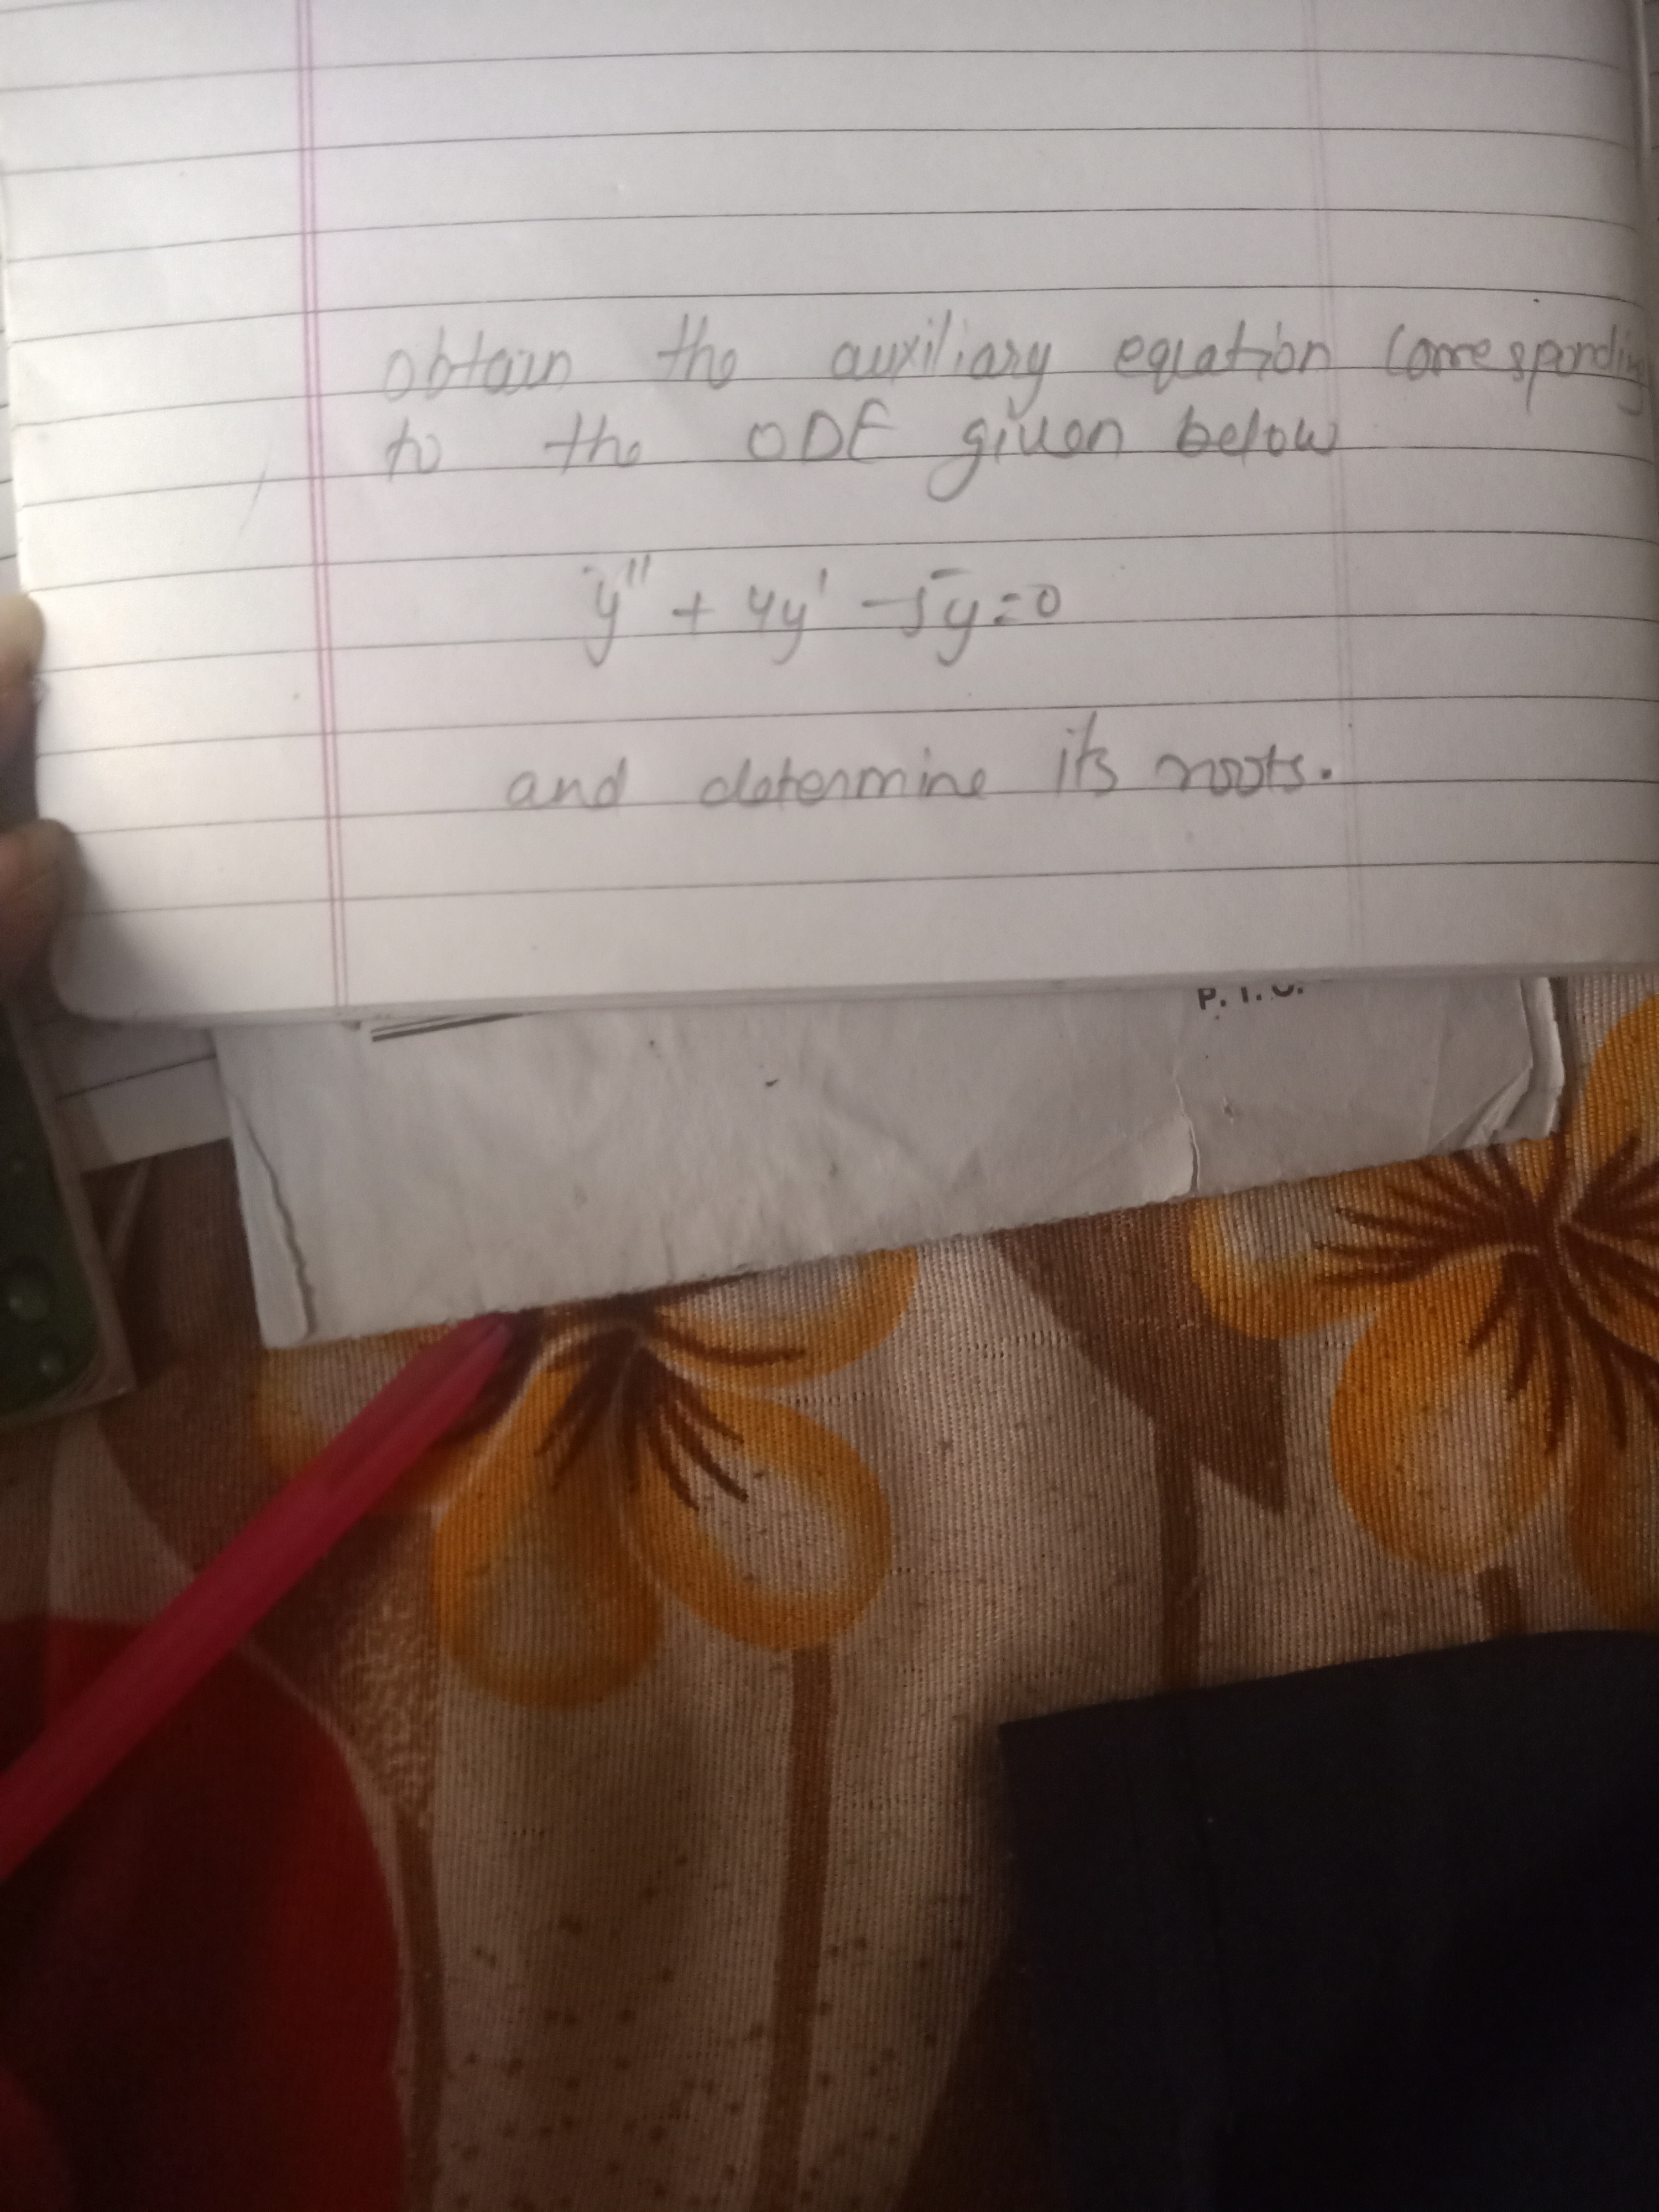 obtain the auxiliary equation corresponding
to the ODE given below
y'' + 4y' - 5y = 0
and determine its roots.
P. T. O.